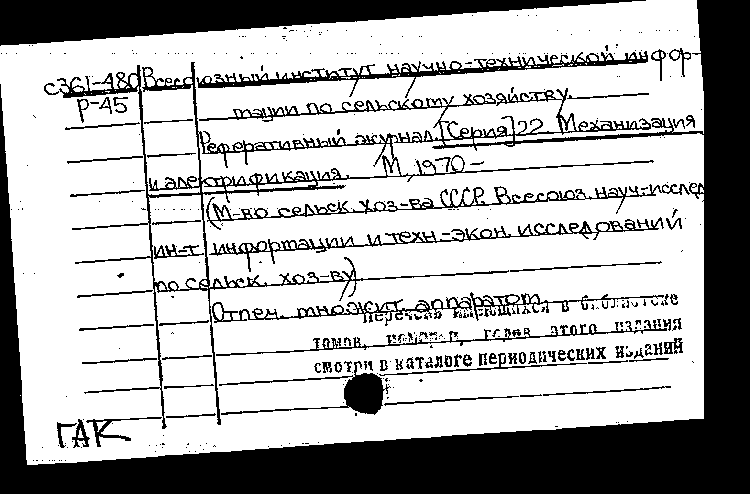 с361-480 Всесоюзный институт научно-технической инфор-
Р-45 мации по сельскому хозяйству.
Реферативный журнал. [Серия] 22. Механизация
и электрификация. М., 1970-
(М-во сельск. хоз-ва СССР. Всесоюз. науч-исслед
ин-т информации и техн.-экон. исследований
по сельск. хоз-ву).
Отпеч. множит. аппаратом.
Перечень имеющихся в библиотеке
томов, номеров, годов этого издания
смотри в каталоге периодических изданий
ГАК